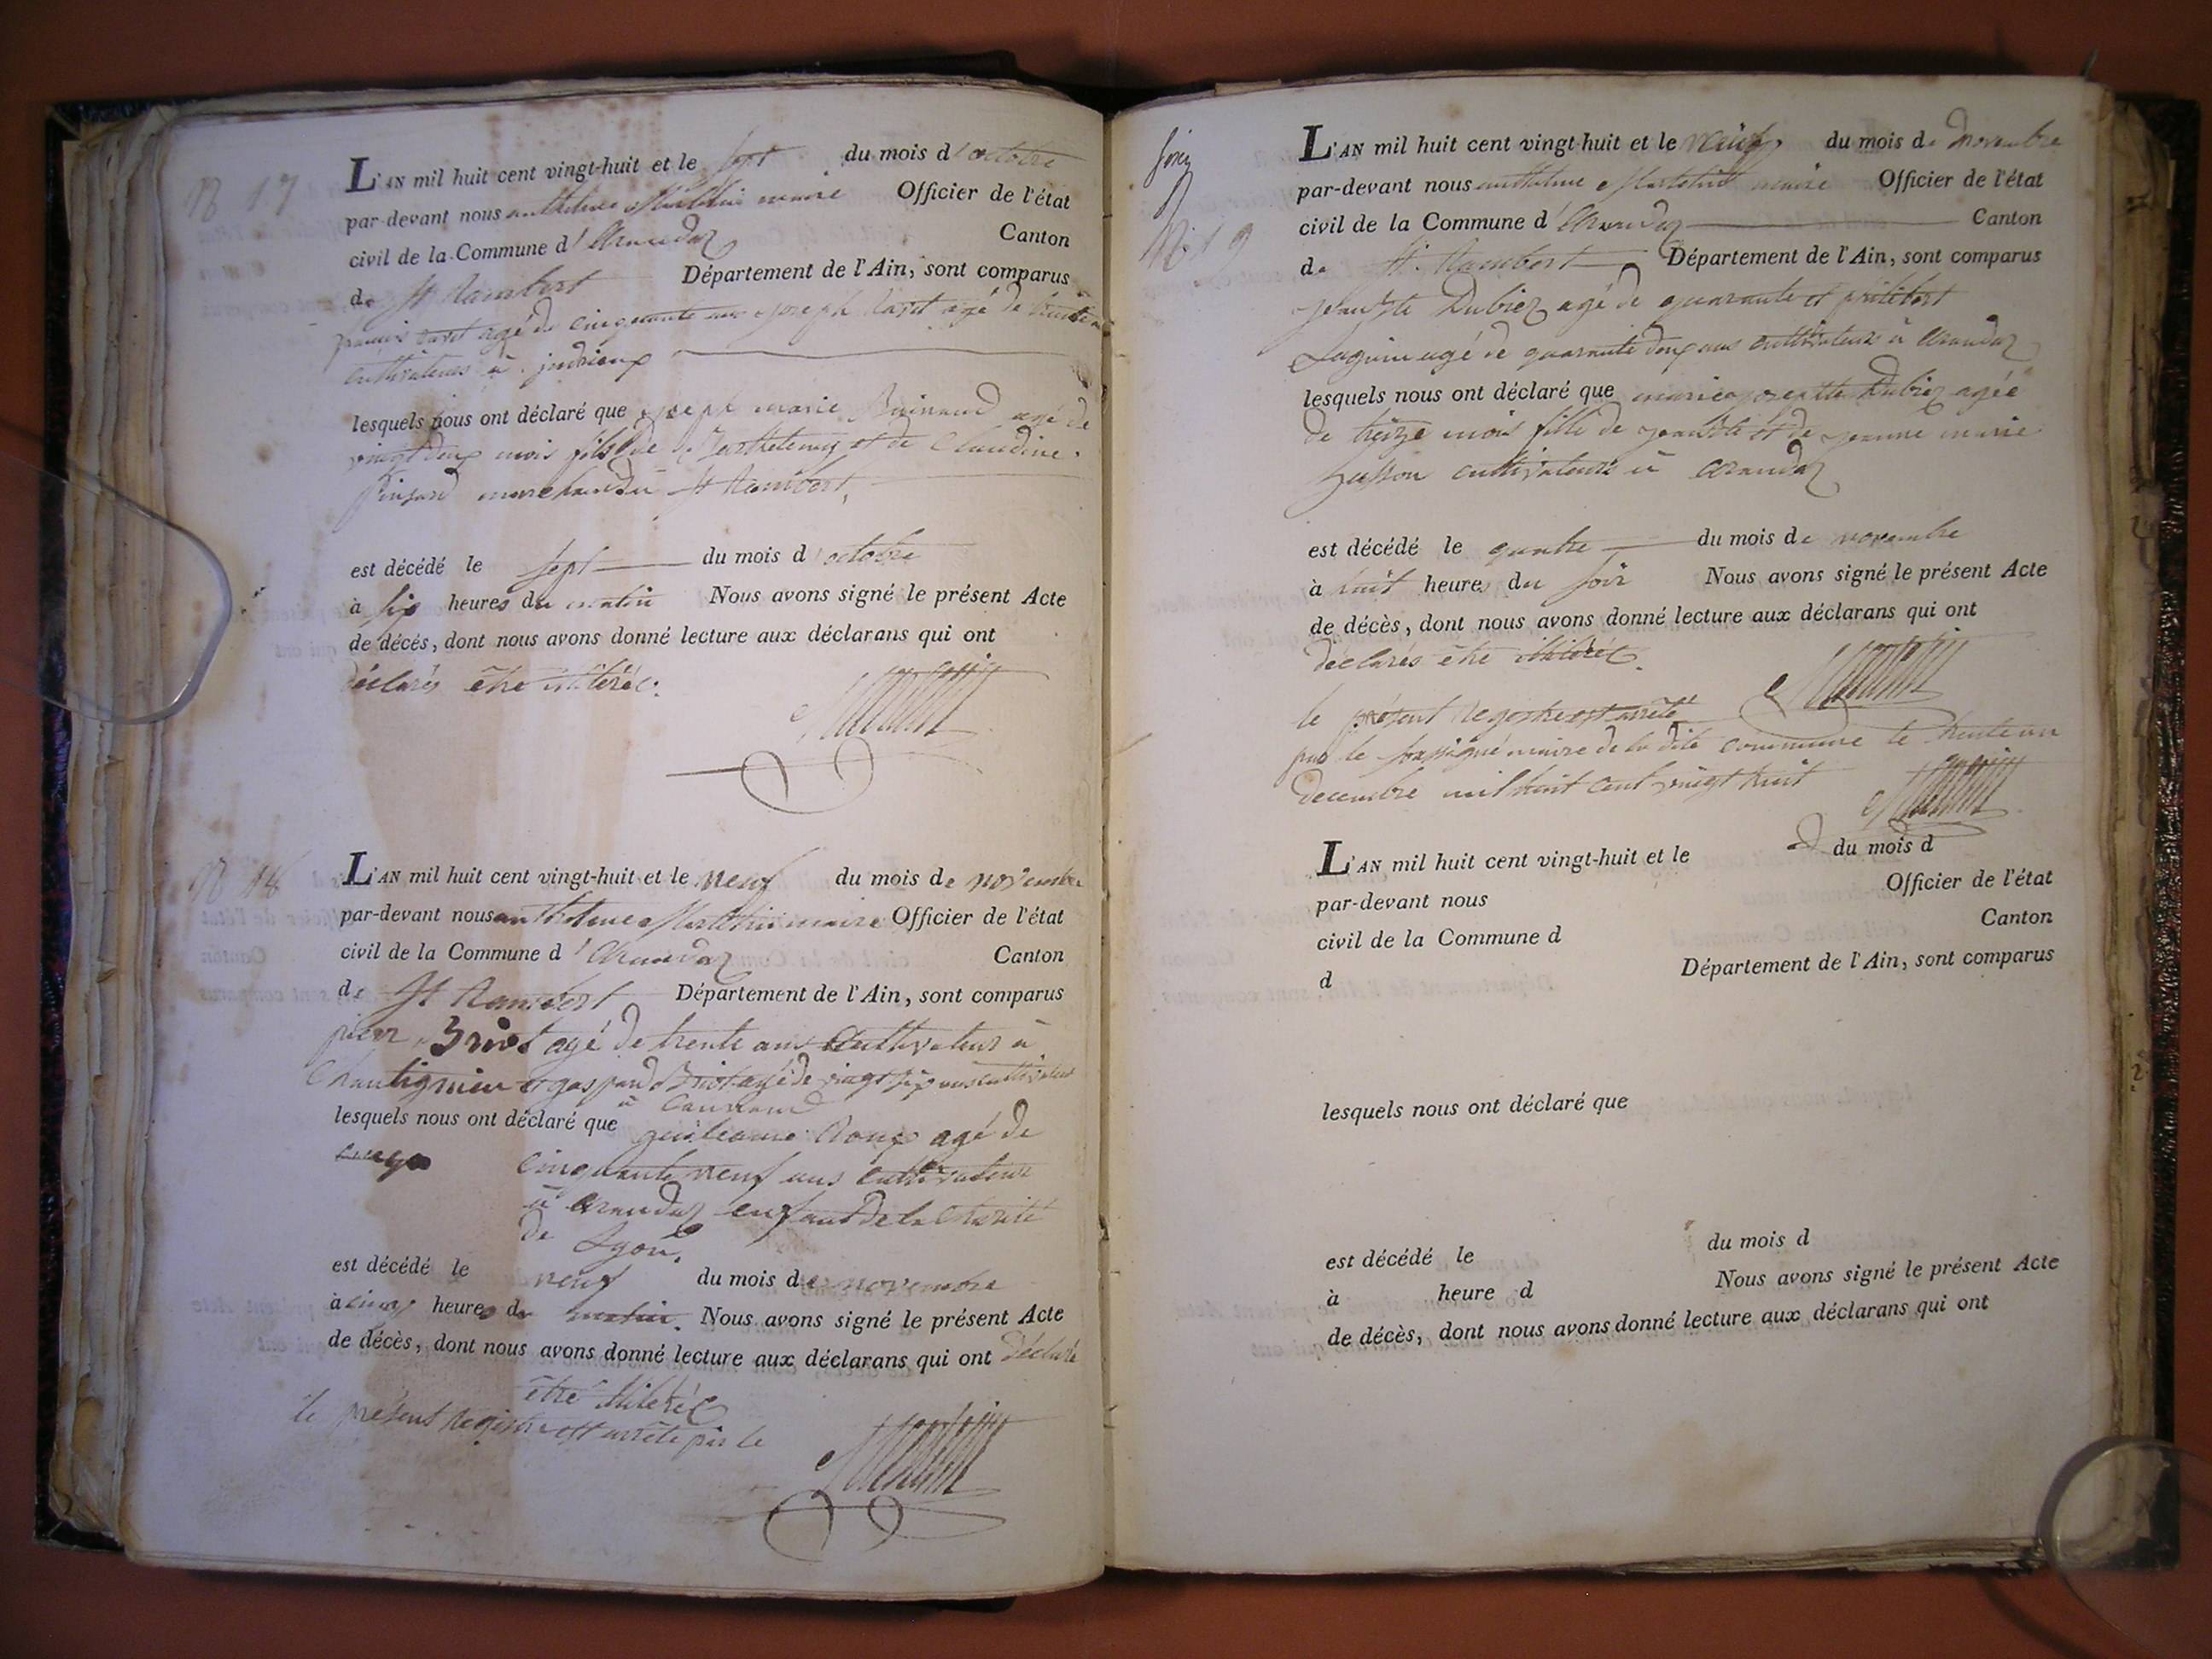 N 17
L'AN mil huit cent vingt-huit et le sept du mois d'octobre
par-devant nous anthelme maire Officier de l'état
civil de la Commune d'Arandaz Canton
de St Rambert Département de l'Ain, sont comparus
agé de cinquante ans joseph agé de
cultivateurs à
lesquels nous ont déclaré que joseph marie agé de
vingt deux mois fils de Barthelemy et de Claudine
marchand à St Rambert,
est décédé le sept du mois d'octobre
à six heures du matin Nous avons signé le présent Acte
de décés, dont nous avons donné lecture aux déclarans qui ont
déclarés être illiteréz.
N 18
L'AN mil huit cent vingt-huit et le neuf du mois de novembre
par-devant nous anthelme maire Officier de l'état
civil de la Commune d'Arandaz Canton
de St Rambert Département de l'Ain, sont comparus
Briot agé de trente ans Cultivateur à
et gaspard Briot agé de vingt six ans cultivateur
à
lesquels nous ont déclaré que guileaume Roux agé de
cinquante neuf ans cultivateur
à arandaz enfant de la Charité
de Lyon.
est décédé le neuf du mois de novembre
à cinq heures du matin. Nous avons signé le présent Acte
de décès, dont nous avons donné lecture aux déclarans qui ont déclaré
être illiteréz
le présent Registre est arrêté par le
N. 19
L'AN mil huit cent vingt-huit et le neuf du mois de novembre
par-devant nous anthelme maire Officier de l'état
civil de la Commune d'Arandaz Canton
de St. Rambert Département de l'Ain, sont comparus
Jean Bte Dubiez agé de quarante et
agé de quarante deux ans cultivateurs à Arandaz
lesquels nous ont déclaré que marie josephte Dubiez agée
de treize mois fille de jean Bte et de jeanne marie
cultivateurs à arandaz
est décédé le quatre du mois de novembre
à huit heures du soir Nous avons signé le présent Acte
de décès, dont nous avons donné lecture aux déclarans qui ont
déclarés être illiteréz.
le présent registre est arrêté
par le soussigné maire de la dite commune le trente un
decembre mil huit cent vingt huit
L'AN mil huit cent vingt-huit et le du mois d
par-devant nous Officier de l'état
civil de la Commune d Canton
d Département de l'Ain, sont comparus
lesquels nous ont déclaré que
est décédé le du mois d
à heure d Nous avons signé le présent Acte
de décès, dont nous avons donné lecture aux déclarans qui ont